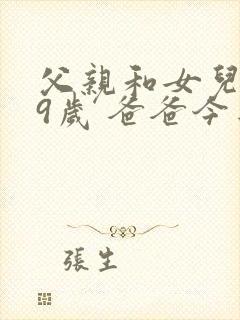 父親和女兒
9歲 爸爸今
張生